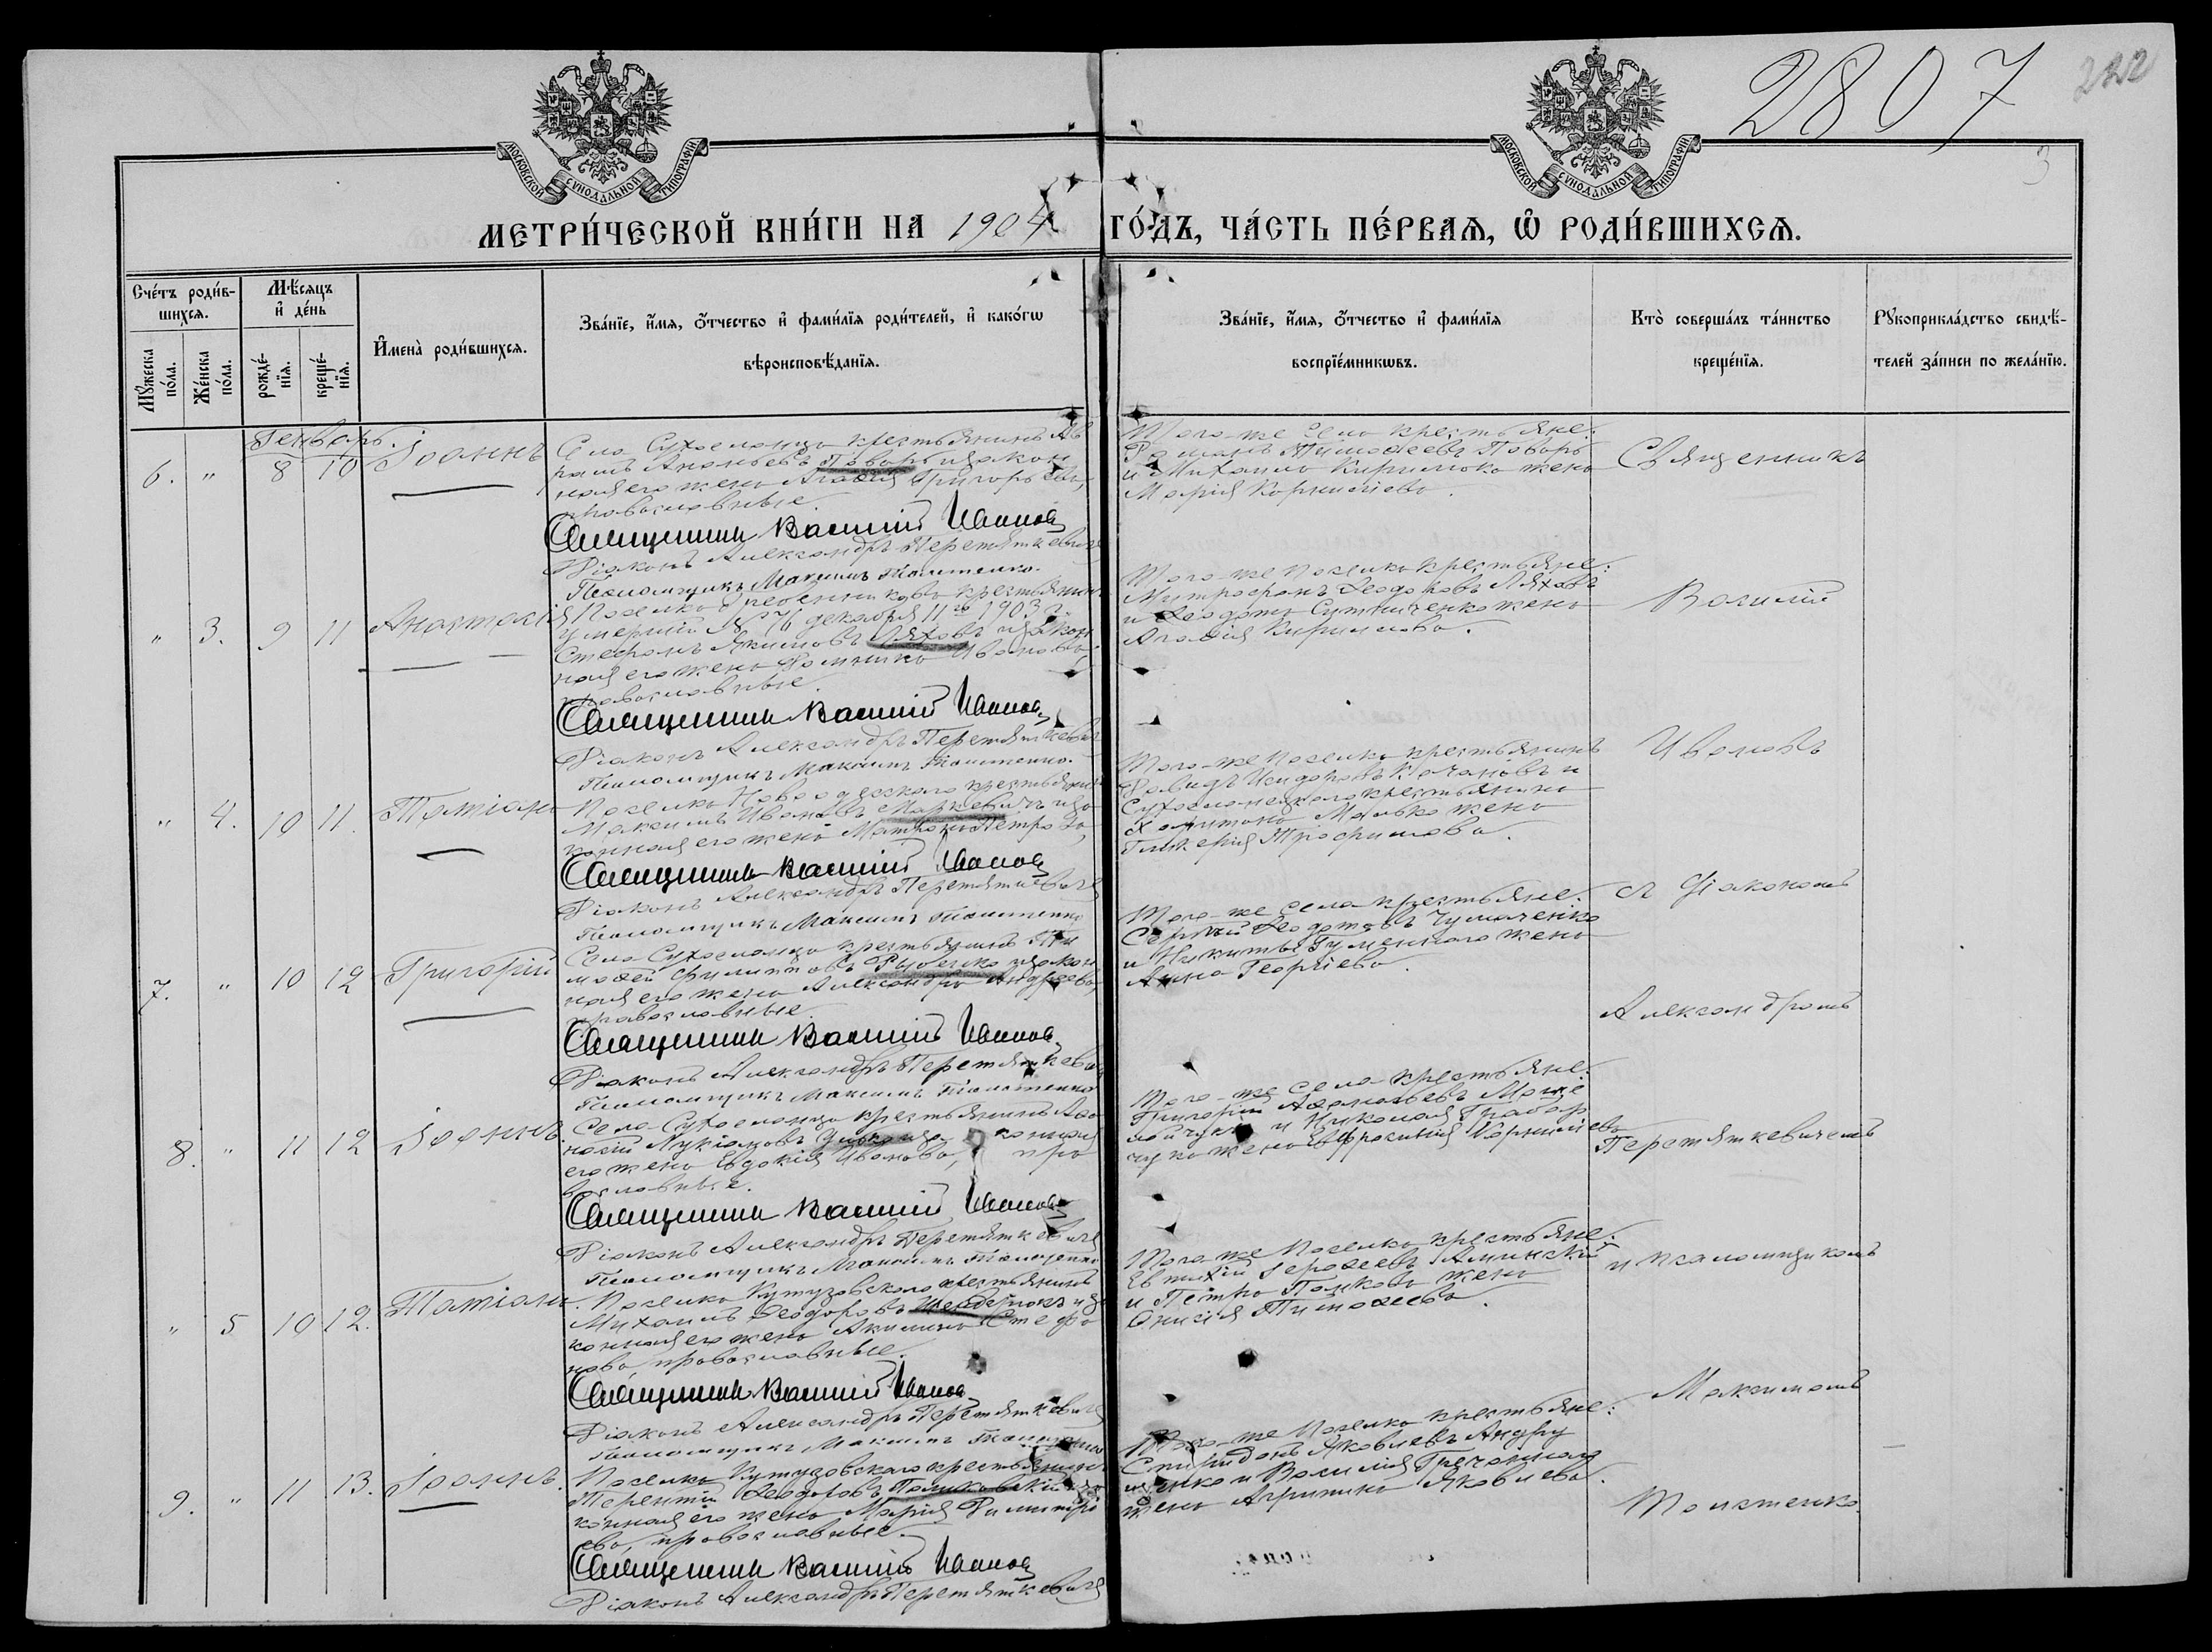 2807
222
3
МОСКОВСКОЙ СѴНОДАЛЬНОЙ ТИПОГРАФІИ
МОСКОВСКОЙ СѴНОДАЛЬНОЙ ТИПОГРАФІИ
МЕТРИ́ЧЕСКОЙ КНИ́ГИ НА 1904 ГО́ДЪ, ЧА́СТЬ ПЕ́РВАѦ, Ѡ҆ РОДИ́ВШИХСѦ.
Сче́тъ роди́в-
шихсѧ.
Мꙋ́жеска по́ла.
Же́нска по́ла.
Мѣ́сяцъ
и҆ де́нь
рожде́-
нїѧ.
креще́-
нїѧ.
И҆мена̀ роди́вшихсѧ.
Зва́нїе, и҆́мѧ, ѻ҆́тчество и҆ фами́лїѧ роди́телей, и҆ како́гѡ
вѣроисповѣ́данїѧ.
Зва́нїе, и҆́мѧ, ѻ҆́тчество и҆ фами́лїѧ
воспрїе́мникѡвъ.
Кто̀ соверша́лъ та́инство
креще́нїѧ.
Рꙋкоприкла́дство свидѣ́-
телей за́писи по жела́нїю.
Генварь.
6. " 8 10 Іоаннъ
Села Сухоеланца крестьянинъ Ав
рамъ Ананьевъ Поваръ и закон
ная его жена Агафія Григорьева,
православные.
Священник Василий Иванов
Діаконъ Александръ Перетяткевичъ
Псаломщикъ Максимъ Толстенко.
Того-же села крестьяне:
Романъ Тимофеевъ Поваръ
и Михаила Кирилюка жена
Марія Корнилiева.
Священникъ
" 3. 9 11 Анастасія
Поселка Гребенникова крестьянинъ
умершій 11го декабря 1903 г.
Стефанъ Якимовъ Ляховъ и закон
ная его жена Домника Иванова,
православные.
Священник Василий Иванов
Діаконъ Александръ Перетяткевичъ
Псаломщикъ Максимъ Толстенко.
Того-же поселка крестьяне:
Митрофанъ Ѳеодоровъ Ляховъ
и Ѳеодота Ситниченка жена
Агафія Кирилова.
Василій
" 4. 10 11. Татіана
Поселка Новоодесскаго крестьянинъ
Максимъ Ивановъ Маркевичъ и за
конная его жена Матрона Петрова,
Священник Василий Иванов
Діаконъ Александръ Перетяткевичъ
Псаломщикъ Максимъ Толстенко
Того-же поселка крестьянинъ
Давидъ Исидоровъ Качановъ и
Сухоеланецкаго крестьянина
Харитона Малька жена
Гликерія Трофимова.
Ивановъ
7. " 10 12 Григорій
Села Сухоеланца крестьянинъ Ти
мофей Филипповъ Рыбачко и закон
ная его жена Александра Андреева,
православные.
Священник Василий Иванов
Діаконъ Александръ Перетяткевичъ
Псаломщикъ Максимъ Толстенко
Того-же села крестьяне:
Сергѣй Ѳеодотовъ Чумаченко
и Никиты Гуменнаго жена
Анна Георгіева.
съ Діакономъ
Александромъ
8. " 11 12 Іоаннъ.
Села Сухоеланца крестьянинъ Аѳа
насій Лукіановъ и за конная
его жена Евдокія Иванова, пра
вославные.
Священник Василий Иванов
Діаконъ Александръ Перетяткевичъ
Псаломщикъ Максимъ Толстенко
Того-же села крестьяне:
Григорій Аѳанасьевъ
и Николая Грабар
чука жена Ефросинія Корнилiева
Перетяткевичемъ
" 5 10 12. Татіана.
Поселка Кутузовскаго крестьянинъ
Михаилъ Ѳеодоровъ Шендерюкъ и за
конная его жена Акилина Стефа
нова, православные.
Священник Василий Иванов
Діаконъ Александръ Перетяткевичъ
Псаломщикъ Максимъ Толстенко
Того-же поселка крестьяне:
Евтихій Іероѳеевъ
и Петра Полкова жена
Онисія Тимоѳеева.
и псаломщикомъ
Максимомъ
9. " 11 13. Іоаннъ.
Поселка Кутузовскаго крестьянинъ
Терентій Ѳеодоровъ и за
конная его жена Марія Димитрі
ева, православные.
Священник Василий Иванов
Діаконъ Александръ Перетяткевичъ
Того-же поселка крестьяне:
Спиридонъ Яковлевъ Андру
щенко и Василія Гречанаго
жена Агрипина Яковлева.
Толстенко.